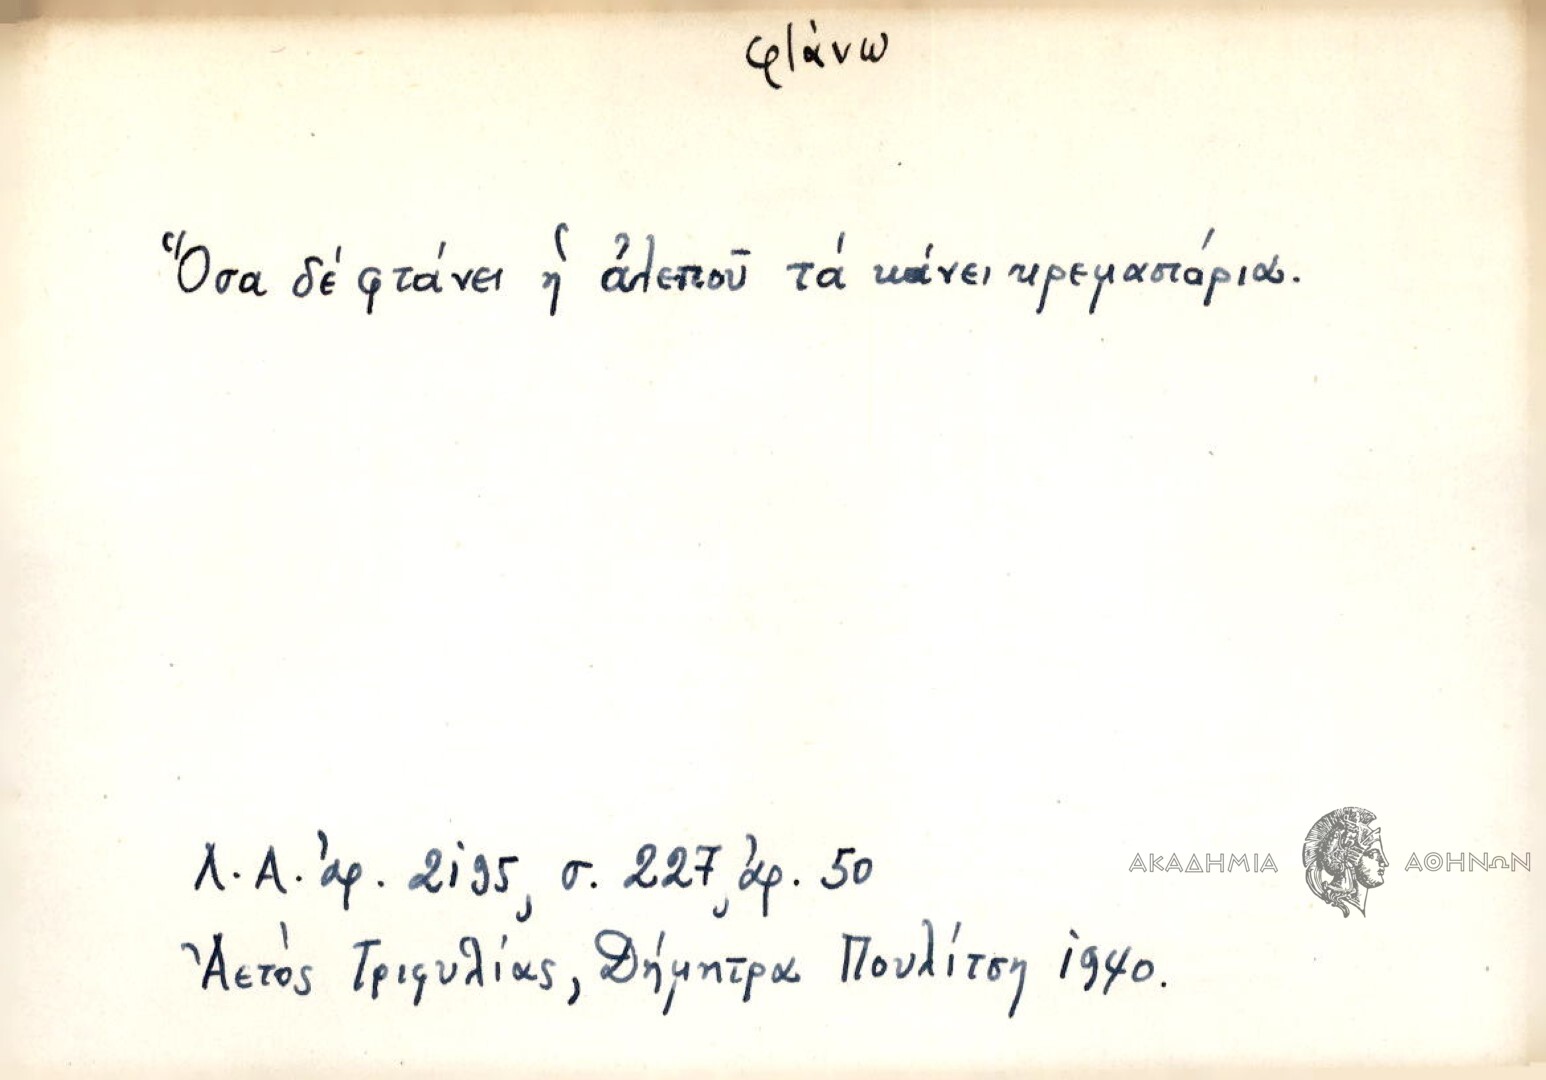 φτάνω
Ὅσα δέ φτάνει ἡ ἀλεποῦ τά κάνει κρεμαστάρια.
Λ.Α. ἀρ. 2195, σ. 227, ἀρ. 50
ΑΚΑΔΗΜΙΑ ΑΘΗΝΩΝ
Ἀετὸς Τριφυλίας, Δήμητρα Πουλίτση 1940.